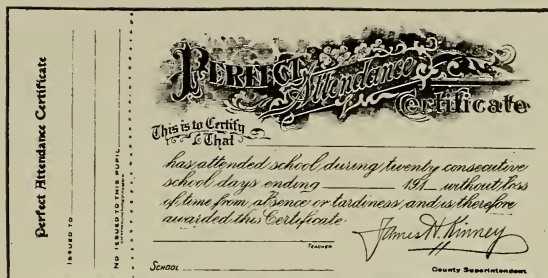 Perfect Attendance Certificate
ISSUED TO
NO ISSUED TO THIS PUPIL
PERFECT
Attendance
Certificate
This is to Certify
That
has attended school, during twenty consecutive
school days ending ______ 191__ without loss
of time from absence or tardiness, and is therefore
awarded this Certificate.
James H. Kinney
TEACHER
SCHOOL
County Superintendent